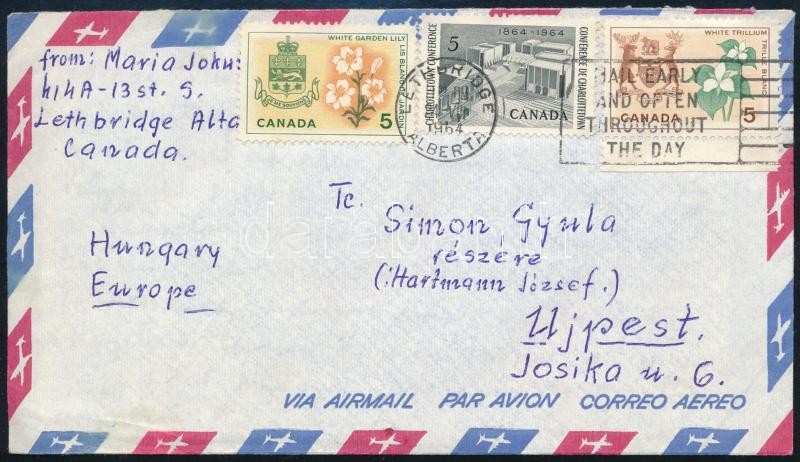 from: Maria Joku
414A-13 st. S.
Lethbridge Alta
Canada.
WHITE GARDEN LILY
LIS BLANC DE JARDIN
JE ME SOUVIENS
CANADA 5
5 1864-1964
CHARLOTTETOWN CONFERENCE
CONFÉRENCE DE CHARLOTTETOWN
WHITE TRILLIUM
TRILLE BLANC
CANADA 5
LETHBRIDGE
1964
ALBERTA
MAIL EARLY
AND OFTEN
THROUGHOUT
THE DAY
Tc.
Simon Gyula
részére
(:Hartmann József.)
Ujpest.
Josika u. 6.
Hungary
Europe
VIA AIRMAIL PAR AVION CORREO AEREO